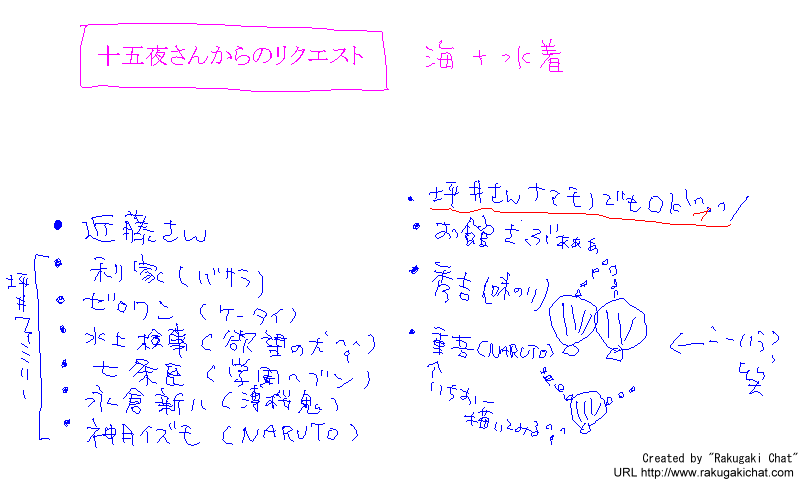 十五夜さんからのリクエスト
海+水着
・近藤さん
坪井ファミリー
・利家(バサラ)
・ゼロワン(ケータイ)
・水上検事(欲望の犬
・七条臣(学園ヘブン)
・永倉新八(薄桜鬼)
・神月イズモ(NARUTO)
・坪井さんナマモノでもOK
・お館さぶぁぁぁ
・秀吉(味のり)
・重吾(NARUTO)
↑
いちおー
描いてみる
←こーいう
Created by "Rakugaki Chat"
URL http://www.rakugakichat.com